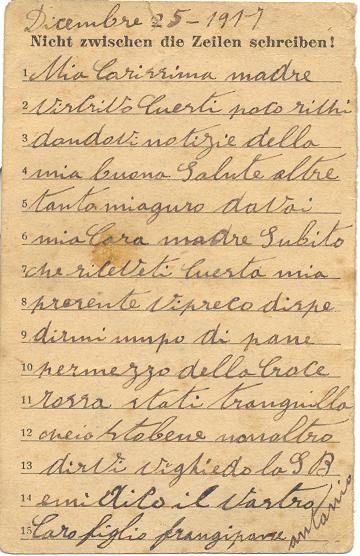 Dicembre 25-1917
Nicht zwischen die Zeilen schreiben!
1 Mia Carissima madre
2 viscrivo Cuesti poco righi
3 dandovi notizie della
4 mia buona Salute altre
5 tanto miaguro davoi
6 mia Cara madre Subito
7 che riceveti Cuesta mia
8 presente vipreco dispe
9 dirmi umpo di pane
10 permezzo della Croce
11 rossa stati tranquilla
12 cheio stobene nonaltro
13 dirvi vighiedo la S B
14 emi dico il vostro
15 Caro figlio frangipane
antonio